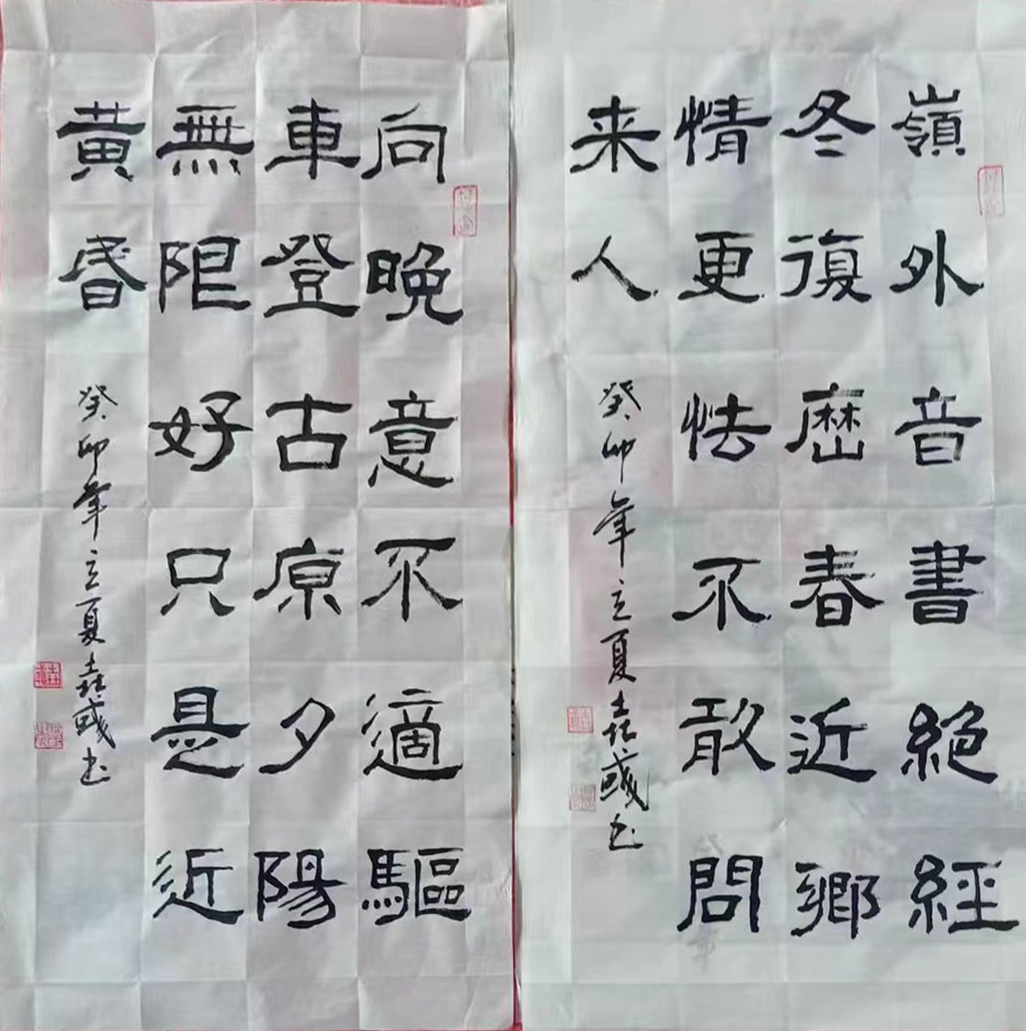 嶺外音書絕經
冬復歷春近鄉
情更怯不敢問
来人
癸卯年立夏
向晚意不適驅
車登古原夕陽
無限好只是近
黃昏
癸卯年立夏